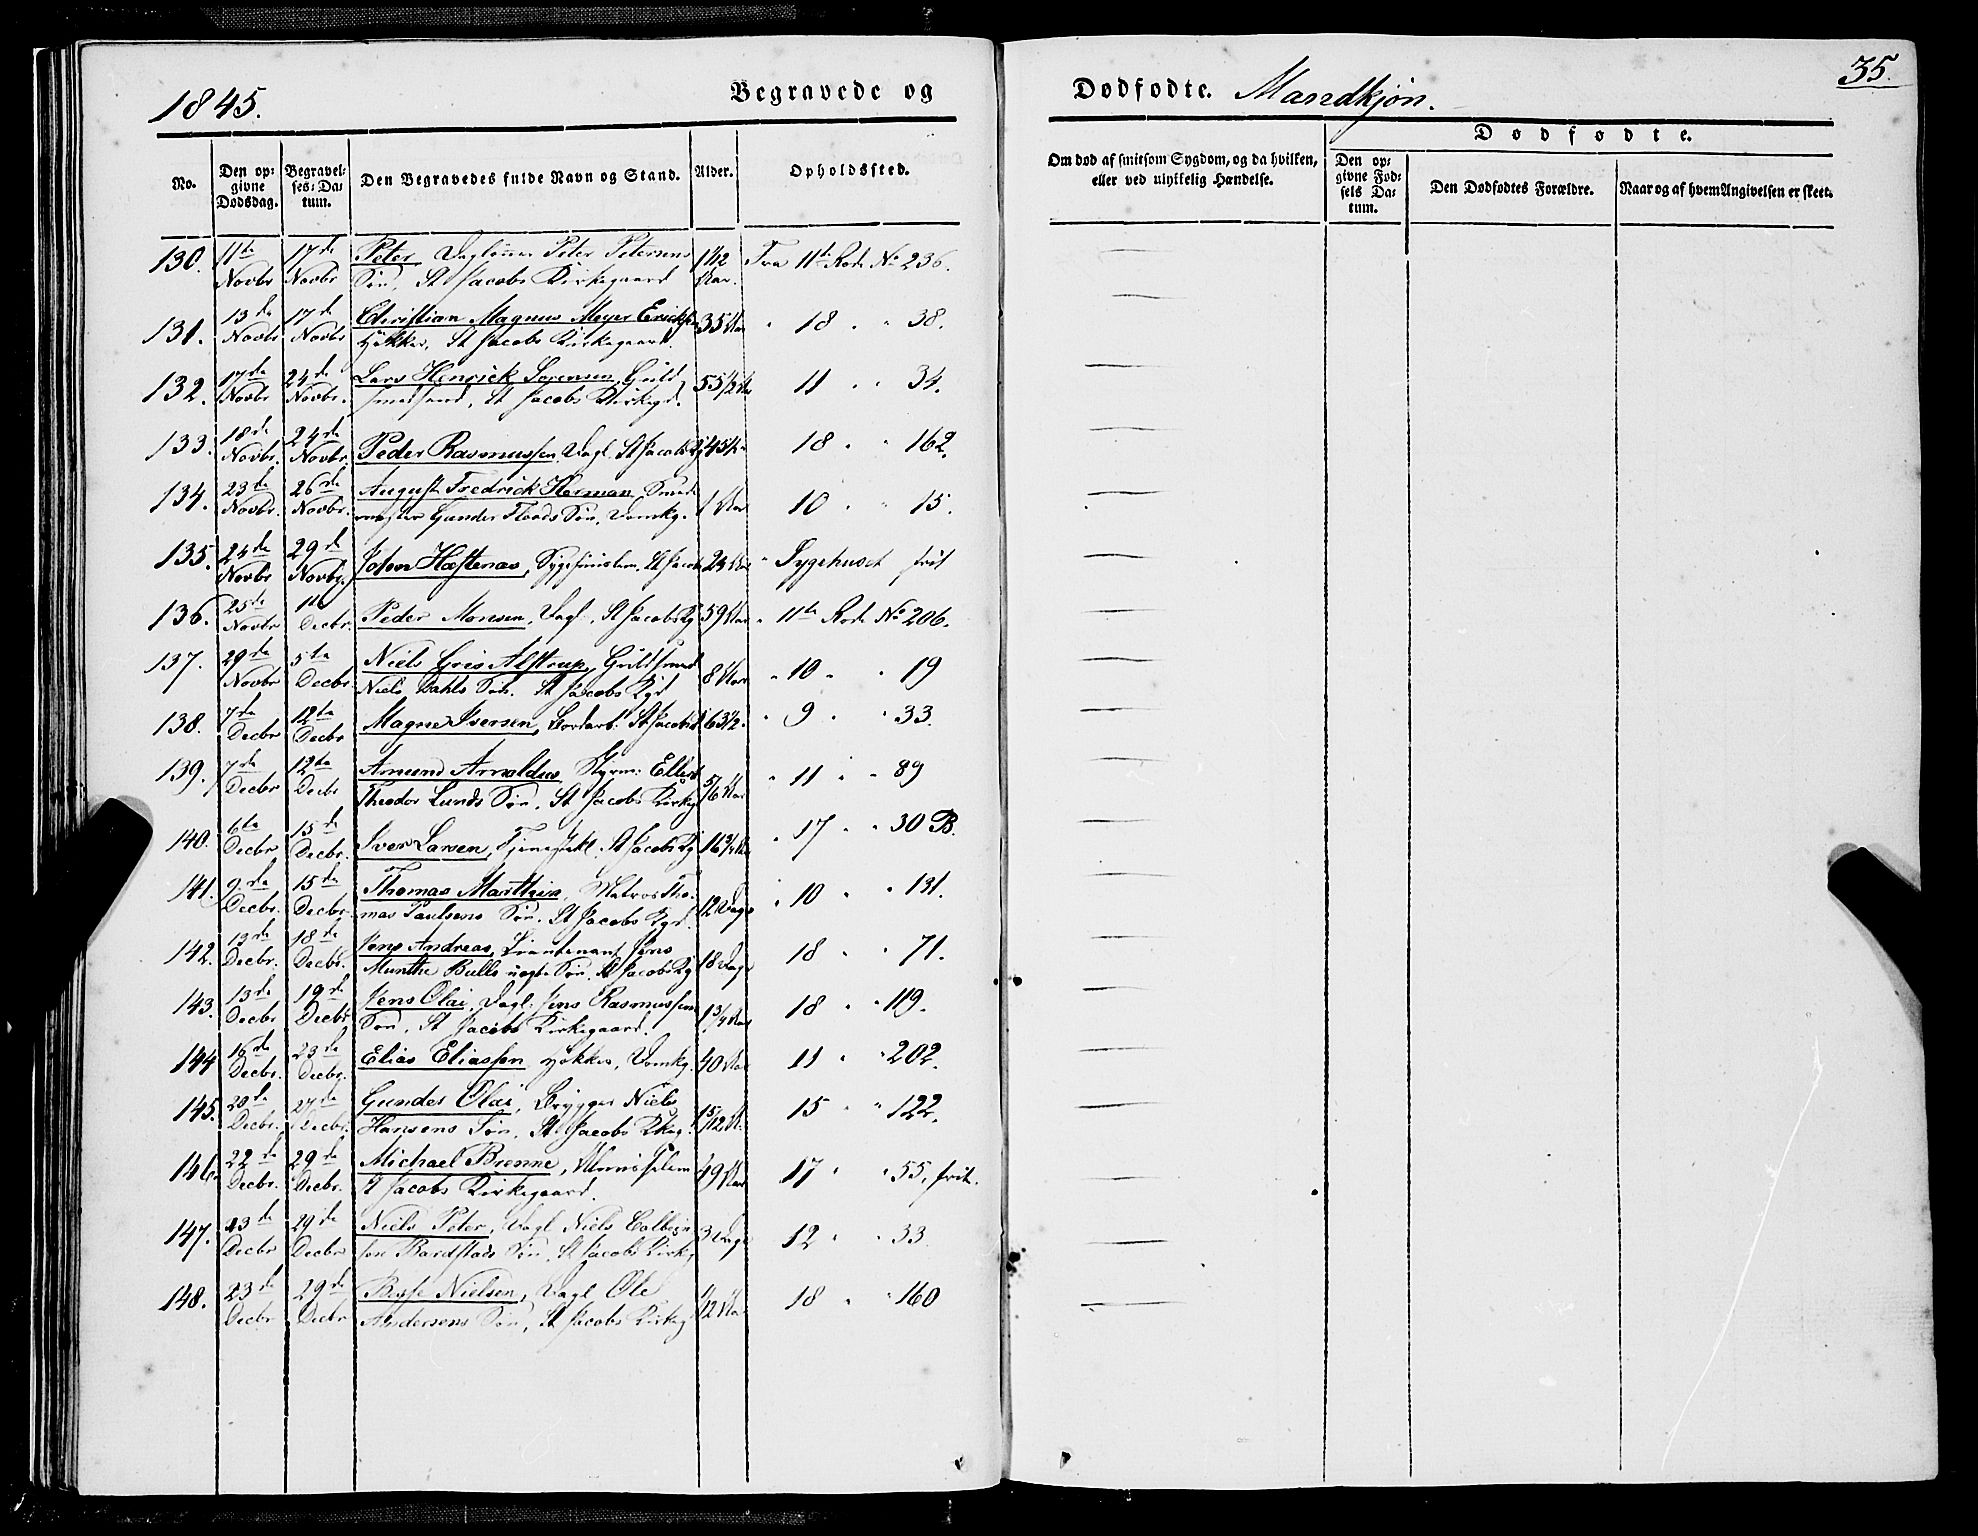 1845.
Begravede og
Dødfødte. Mandkjøn.
35.
No.
Den opgivne Dødsdag.
Begravelses-Datum.
Den Begravedes fulde Navn og Stand.
Alder.
Opholdssted.
Om død af smitsom Sygdom, og da hvilken, eller ved ulykkelig Hændelse.
Dødfødte.
Den opgivne Fødsels Datum.
Den Dødfødtes Forældre.
Naar og af hvem Angivelsen er skeet.
130. 11te Novbr 17de Novbr Peter, Dagleier Peter Petersens
Søn, St Jacobs Kirkegaard 1 1/2 Aar. Fra 11te Rode No 236.
131. 13de Novbr 17de Novbr Christian Magnus Meyer Ericksen
Høkker, St Jacobs Kirkegaard. 35 Aar " 18 " " 38.
132. 17de Novbr 24de Novbr. Lars Henrick Sorensen, Guld
smedsvend, St Jacobs Kirkegd. 55 1/2 Aar 11 " " 34.
133. 18de Novbr. 24de Novbr. Peder Rasmussen, Dagl. St Jacobs Kg 45 Aar 18 " " 162.
134. 23de Novbr. 26de Novbr. August Fredrick Herman, Smed
mester Gunder Floods Søn, Domkg. 1 Aar 10 " " 15.
135. 24de Novbr 29de Novbr. John Hæstenæs, Sygehuuslem. St Jacobs 24 Aar " Sygehuset frit
136. 25de Novbr 1te Decbr. Peder Monsen, Dagl., St Jacobs Kg 59 Aar " 11te Rode No 206.
137. 29de Novbr 5te Decbr. Niels Gris Alstrup, Guldsmed
Niels Dahls Søn. St Jacobs Kgd 8 Aar " 10 " " 19
138. 7de Decbr 12te Decbr Magne Iversen, Bordarb. St Jacobs 63 1/2. " 9 " " 33.
139. 7de Decbr 12te Decbr Amund Arnoldus, Styrm: Ellert
Theodor Lunds Søn, St Jacobs Kirkg 5/6 Aar " 11 " " 89
140. 6te Decbr 15de Decbr. Iver Larsen, Tjenestekl. St Jacobs Kg 16 3/4 Aar " 17 " " 30 B.
141. 9de Decbr. 15de Decbr. Thomas Marthin, Matros Tho-
mas Paulsens Søn. St Jacobs Kgd. 12 Dage " 10 " " 131.
142. 13de Decbr. 18de Decbr. Jens Andreas, Lieutenant Jens
Munthe Bulls uægte Søn, St Jacobs Kg 18 Dage 18 " " 71.
143. 13de Decbr 19de Decbr Jens Olai, Dagl. Jens Rasmussens
Søn, St Jacobs Kirkegaard. 1 3/4 Aar 18 " " 119.
144 16de Decbr. 23de Decbr. Elias Eliassen Høkker, Domkg. 40 Aar 11 " " 202.
145. 20de Decbr. 27de Decbr. Gunder Olai, Brygger Niels
Hansens Søn, St Jacobs Kkeg. 1 5/12 A. 15 " " 122.
146. 22de Decbr. 29de Decbr. Michael Brenne, Almisselem
St Jacobs Kirkegaard. 49 Aar 17 " " 55, frit.
147. 23de Decbr 29de Decbr Niels Peter, Dagl Niels Colbein
sen Bardstads Søn, St Jacobs Kirkeg 3 Dage 12 " " 33.
148. 23de Decbr 29de Decbr Nielsen, Dagl Ole
Andersens Søn, St Jacobs Kirkeg 18 " " 160